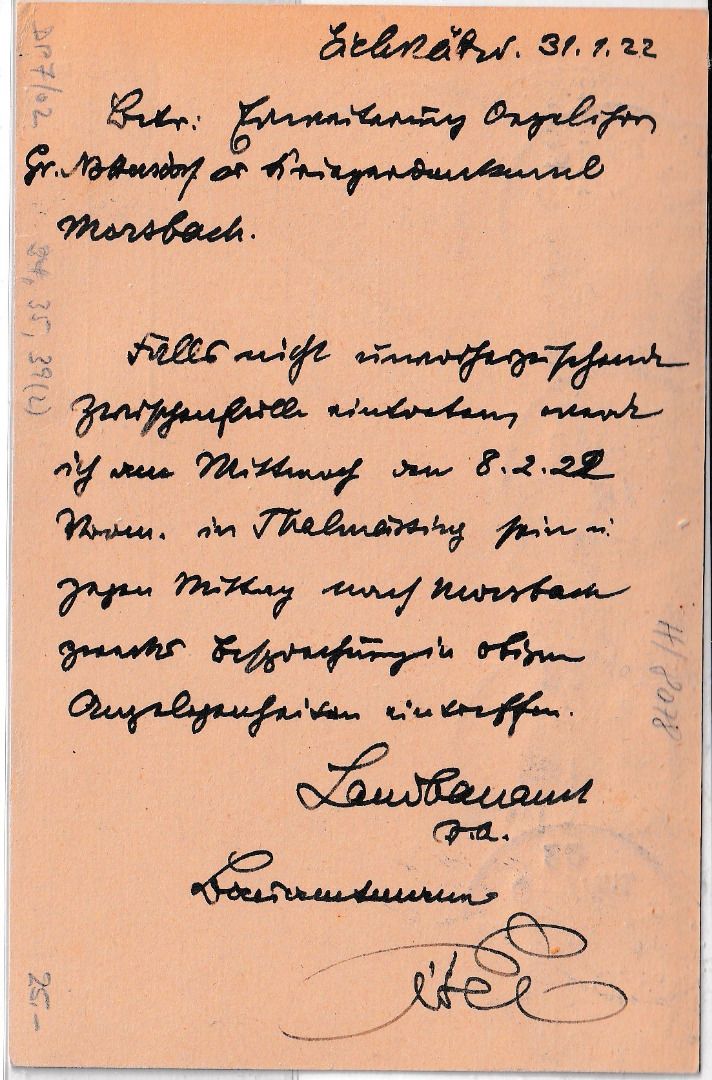 Eichstätt. 31.1.22
Betr: Erweiterung Orgelchor
Gr. Nottersdorf & Kriegerdenkmal
Morsbach.
Falls nicht unvorherzusehende
Zwischenfälle eintreten, werde
ich am Mittwoch den 8.2.22
Vorm. in Thalmässing sein u.
gegen Mittag nach Morsbach
zwecks Besprechung in obigen
Angelegenheiten eintreffen.
Landbauamt
I.A.
Bauamtmann
DP7/02
35, 39(2)
H/8078
25.-